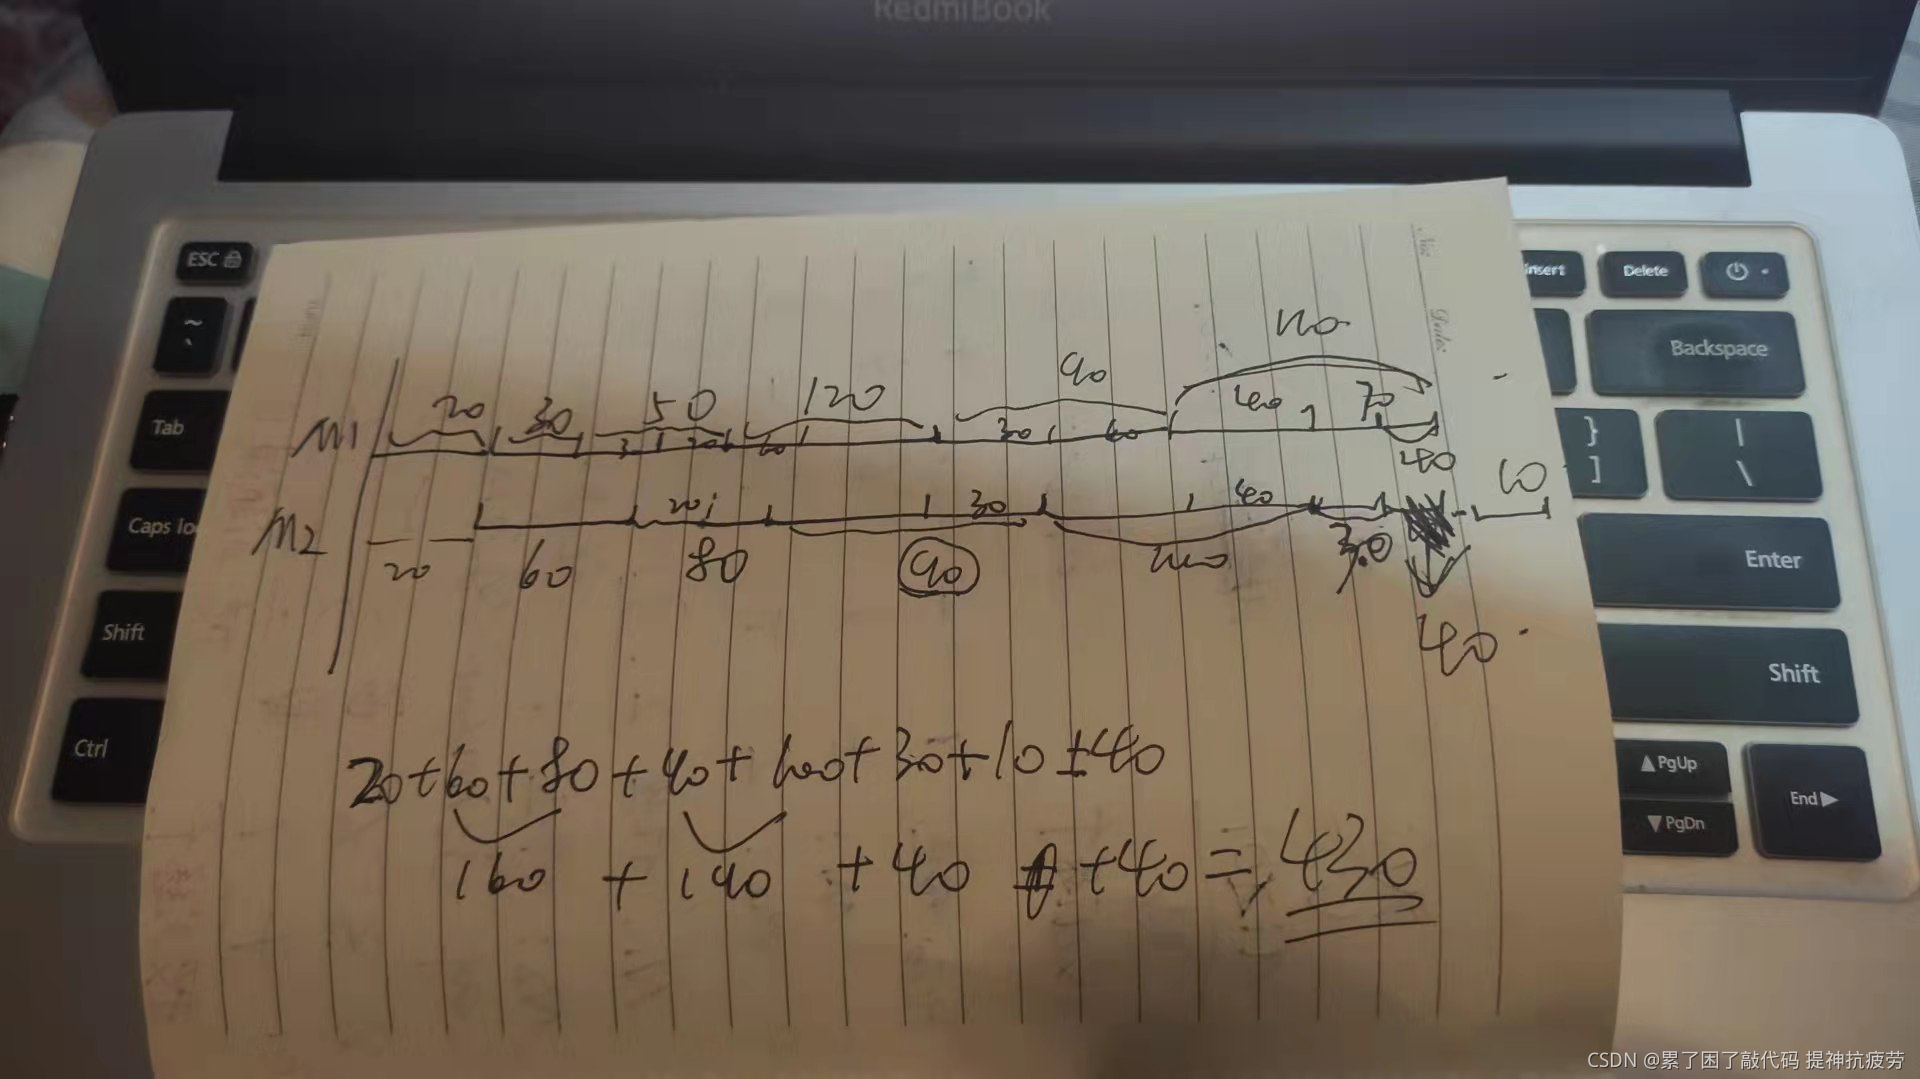 RedmiBook
ESC
Insert
Delete
~
`
Backspace
Tab
}
]
|
\
Caps lo
Enter
Shift
Shift
Ctrl
PgUp
PgDn
End
110
90
M1 20 30 50 120 40 70
30 60
40
10
M2 20 60 20 80 30 90 40 30
40
20+60+80+90+100+30+10+40
160 + 190 + 40 +40 = 430
CSDN @累了困了敲代码 提神抗疲劳